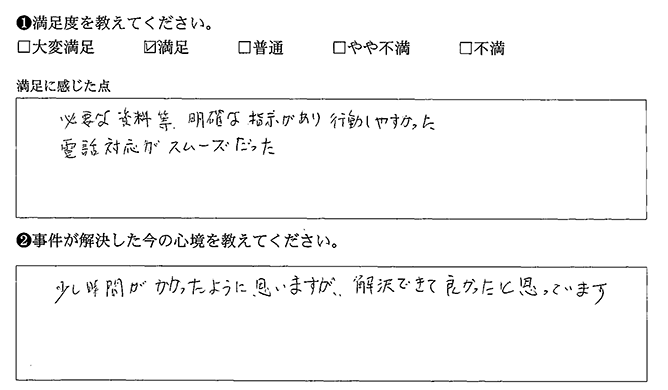 ❶満足度を教えてください。
□大変満足 ☑満足 □普通 □やや不満 □不満
満足に感じた点
必要な資料等、明確な指示があり行動しやすかった
電話対応がスムーズだった
❷事件が解決した今の心境を教えてください。
少し時間がかかったように思いますが、解決できて良かったと思っています